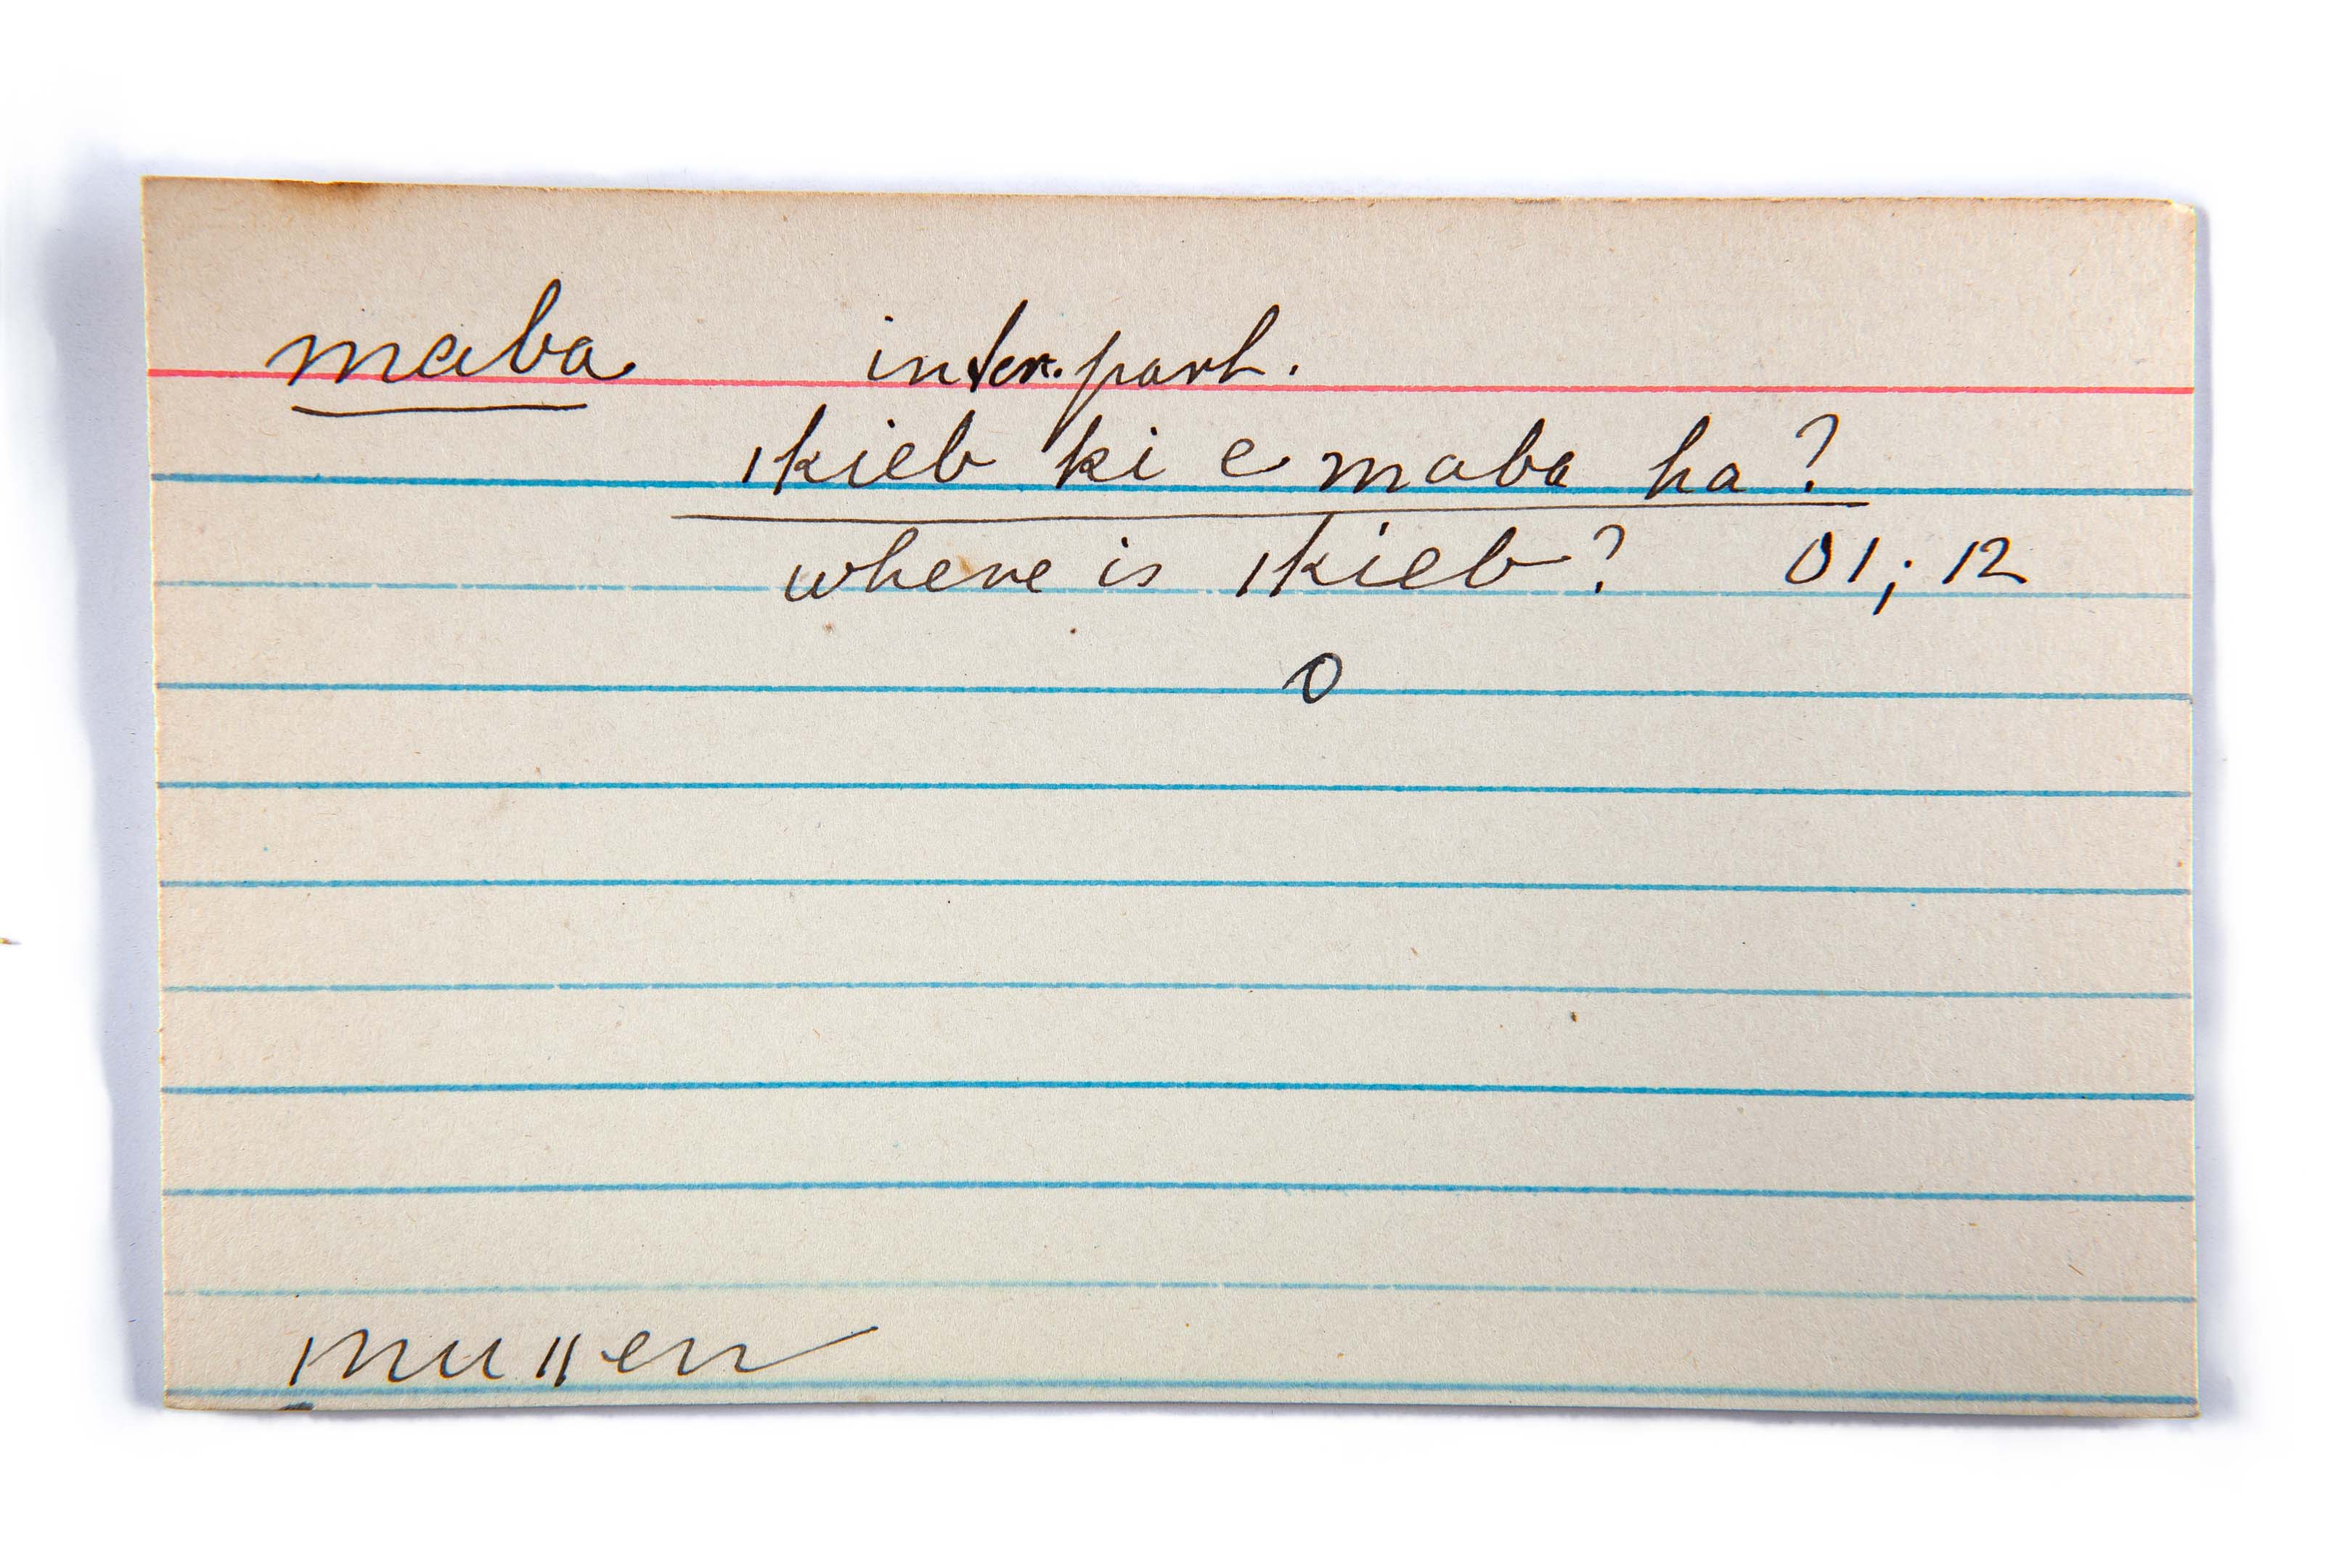 maba inter. part.
ıkieb ki e maba ha?
where is ıkieb? 01; 12
0
ınuıı-en